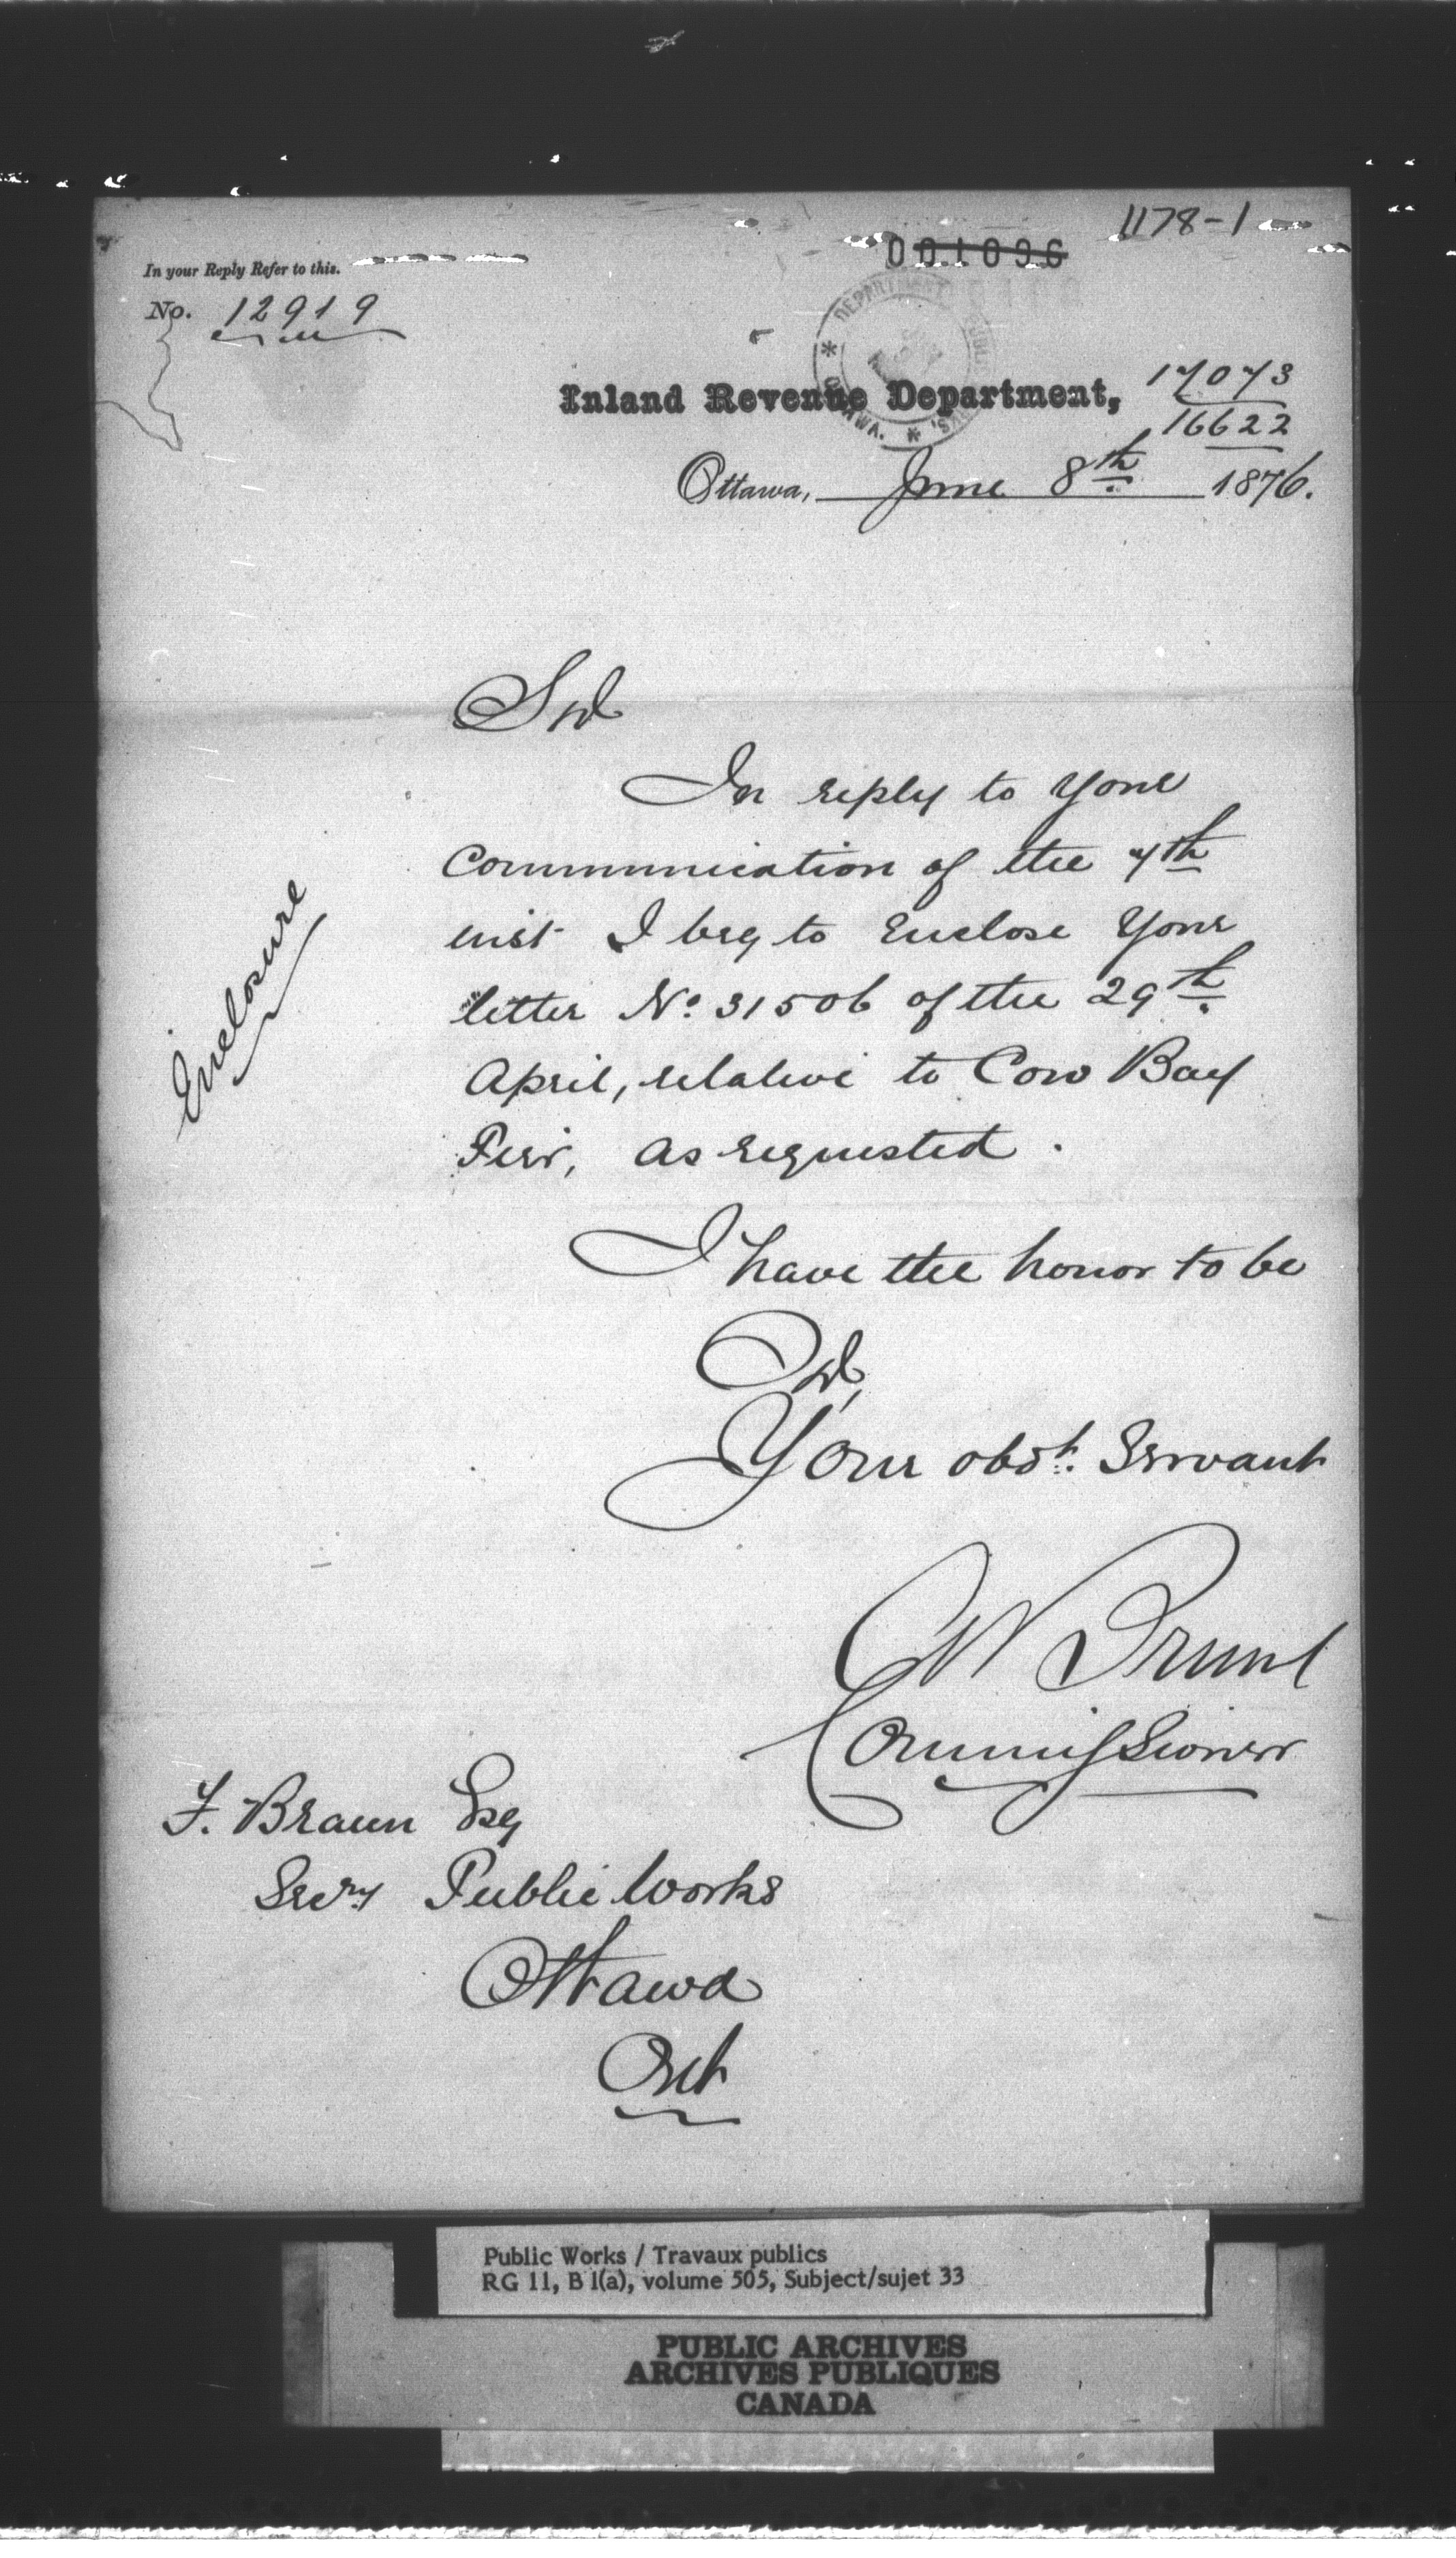 1178-1
001096
In your Reply Refer to this.
No. 12919
DEPARTMENT PUBLIC WORKS. OTTAWA.
Inland Revenue Department,
17073
16622
Ottawa, June 8th 1876.
Sir
In reply to your
Communication of the 7th
inst I beg to Enclose Your
letter No. 31506 of the 29th
April, relative to Cow Bay
Pier, as requested.
Enclosure
I have the honor to be
Sir,
Your obdt. Servant
Commissioner
F. Braun Esq
Secry Public Works
Ottawa
Ont
Public Works / Travaux publics
RG 11, B 1(a), volume 505, Subject/sujet 33
PUBLIC ARCHIVES
ARCHIVES PUBLIQUES
CANADA